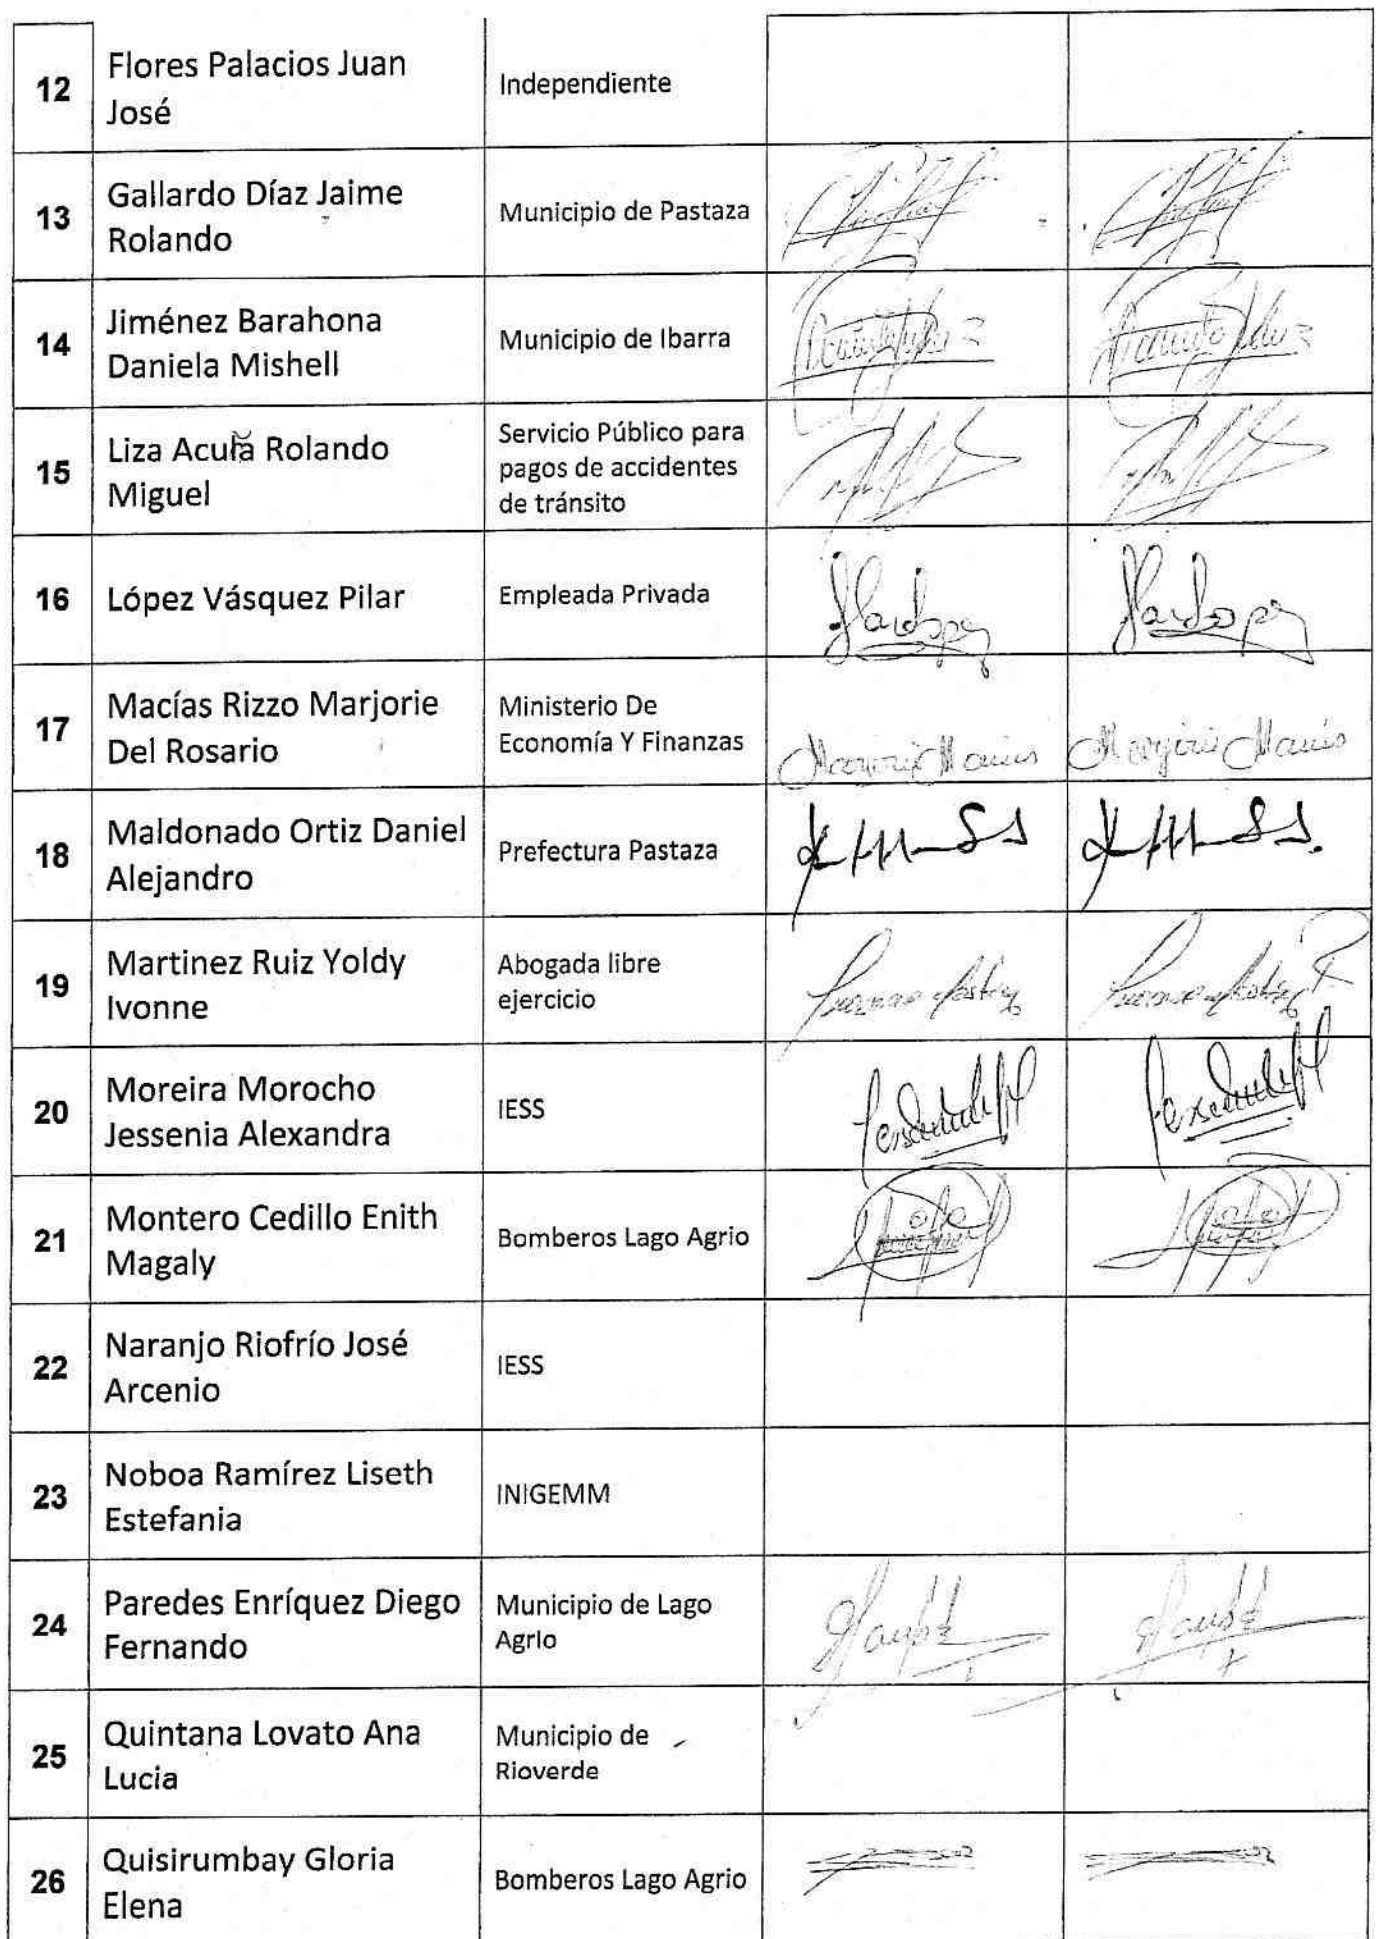 12 Flores Palacios Juan José Independiente
13 Gallardo Díaz Jaime Rolando Municipio de Pastaza
14 Jiménez Barahona Daniela Mishell Municipio de Ibarra
15 Liza Acuña Rolando Miguel Servicio Público para pagos de accidentes de tránsito
16 López Vásquez Pilar Empleada Privada
17 Macías Rizzo Marjorie Del Rosario Ministerio De Economía Y Finanzas Marjorie Macías Marjorie Macías
18 Maldonado Ortiz Daniel Alejandro Prefectura Pastaza
19 Martinez Ruiz Yoldy Ivonne Abogada libre ejercicio
20 Moreira Morocho Jessenia Alexandra IESS
21 Montero Cedillo Enith Magaly Bomberos Lago Agrio
22 Naranjo Riofrío José Arcenio IESS
23 Noboa Ramírez Liseth Estefania INIGEMM
24 Paredes Enríquez Diego Fernando Municipio de Lago Agrio
25 Quintana Lovato Ana Lucia Municipio de Rioverde
26 Quisirumbay Gloria Elena Bomberos Lago Agrio